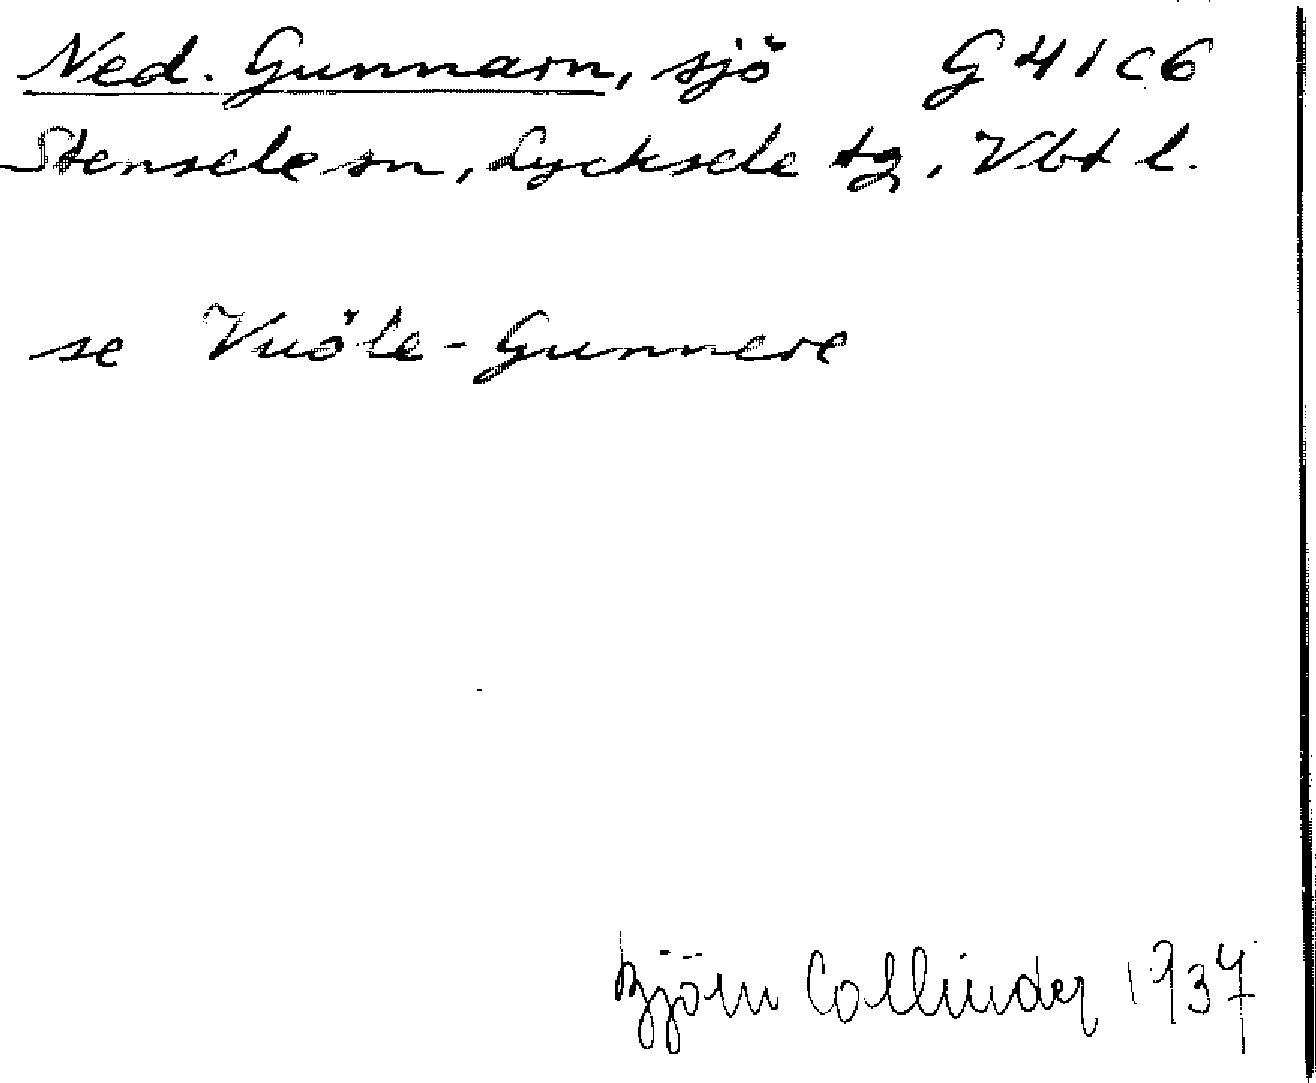 Ned. Gunnarn, sjö G 41 C 6
Stensele sn, Lycksele tg, Vbt l.
se Vuöle-Gunnere
Björn Collinder 1937